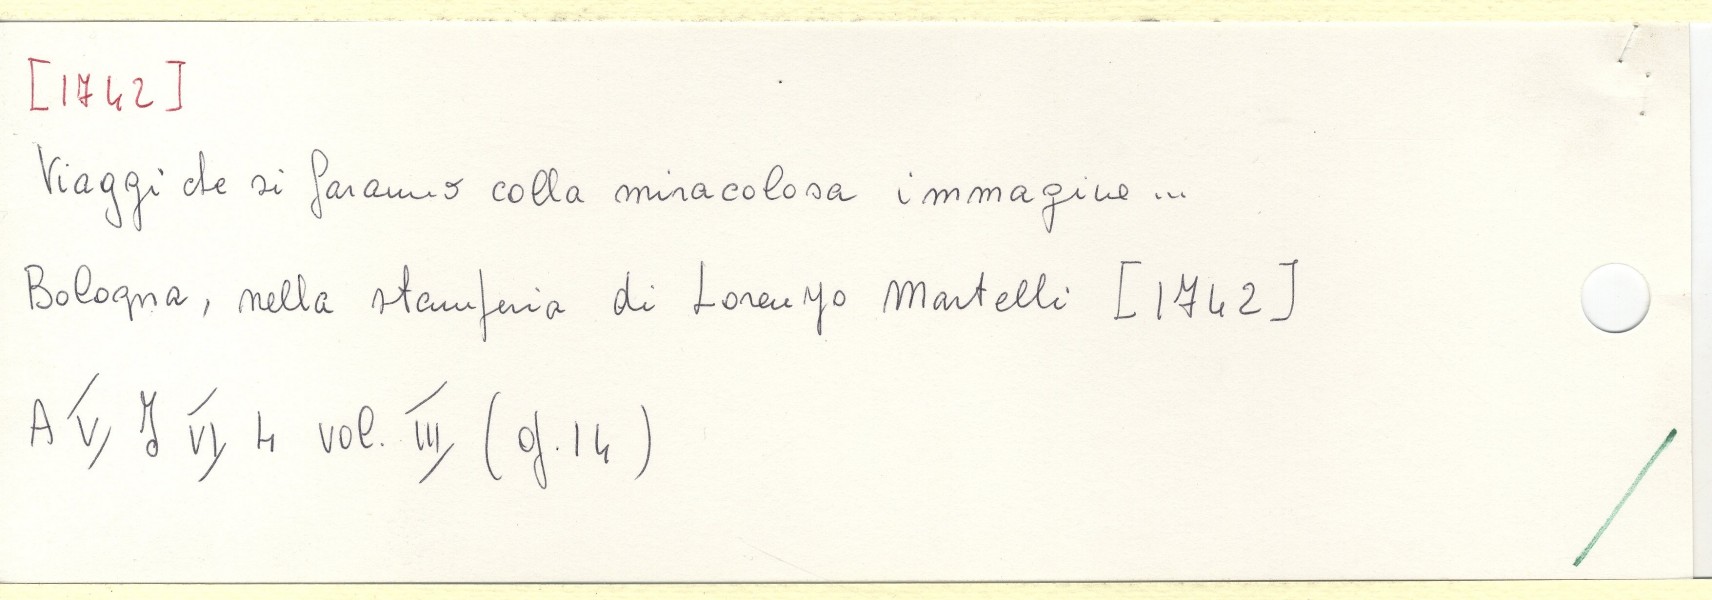 [1742]
Viaggi che si faranno colla miracolosa immagine...
Bologna, nella stamperia di Lorenzo Martelli [1742]
A V, J VI, 4 vol. III, (g. 14)